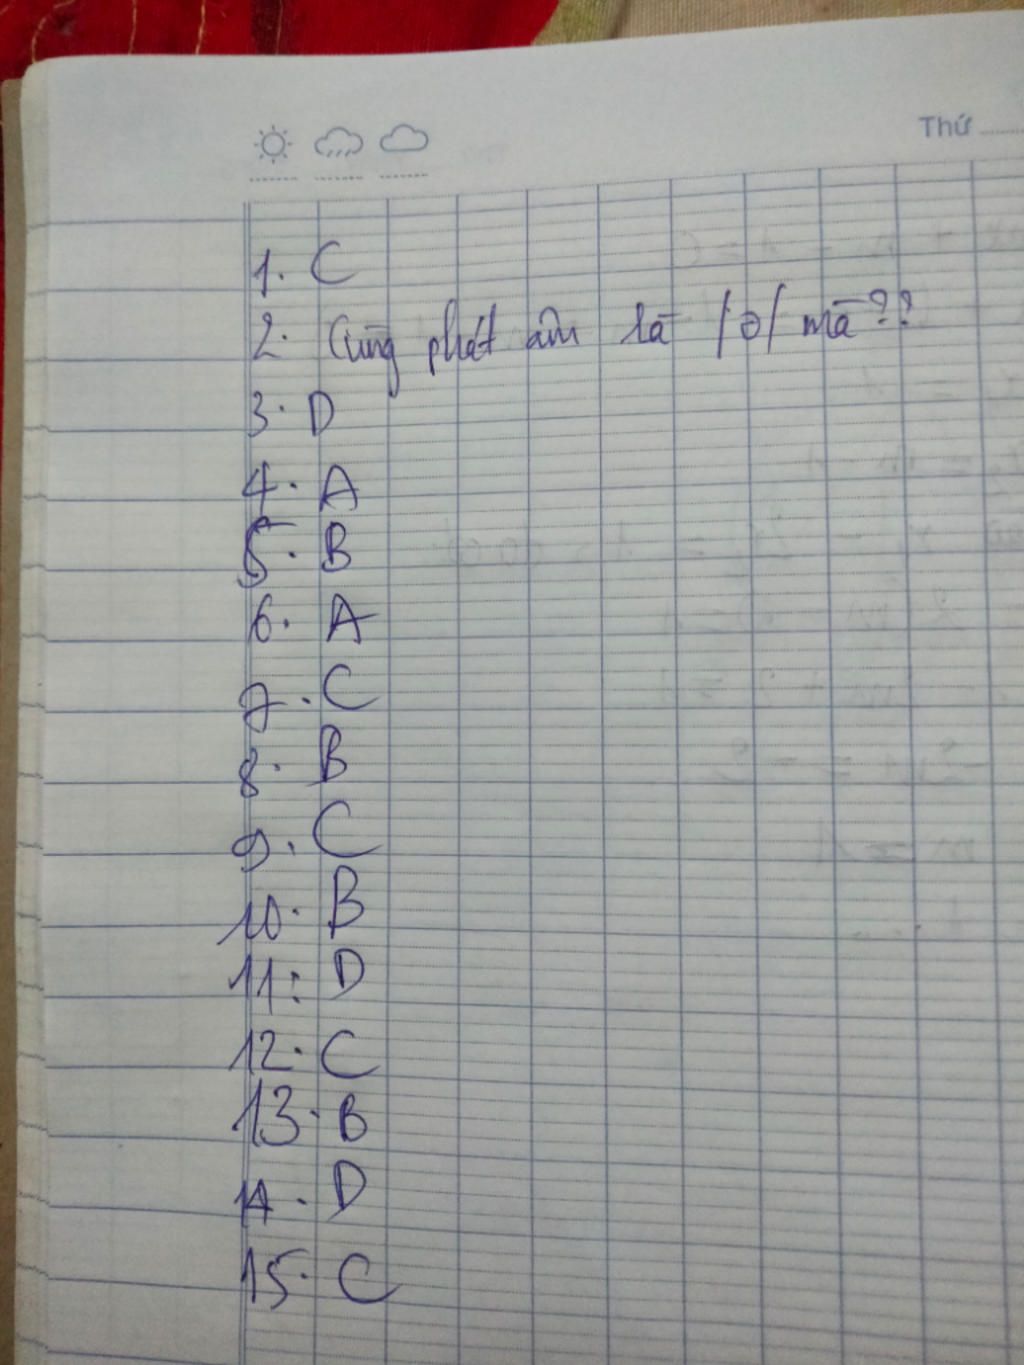 Thứ
1. C
2. Cùng phát âm là /ə/ mà??
3. D
4. A
5. B
6. A
7. C
8. B
9. C
10. B
11: D
12. C
13. B
14. D
15. C